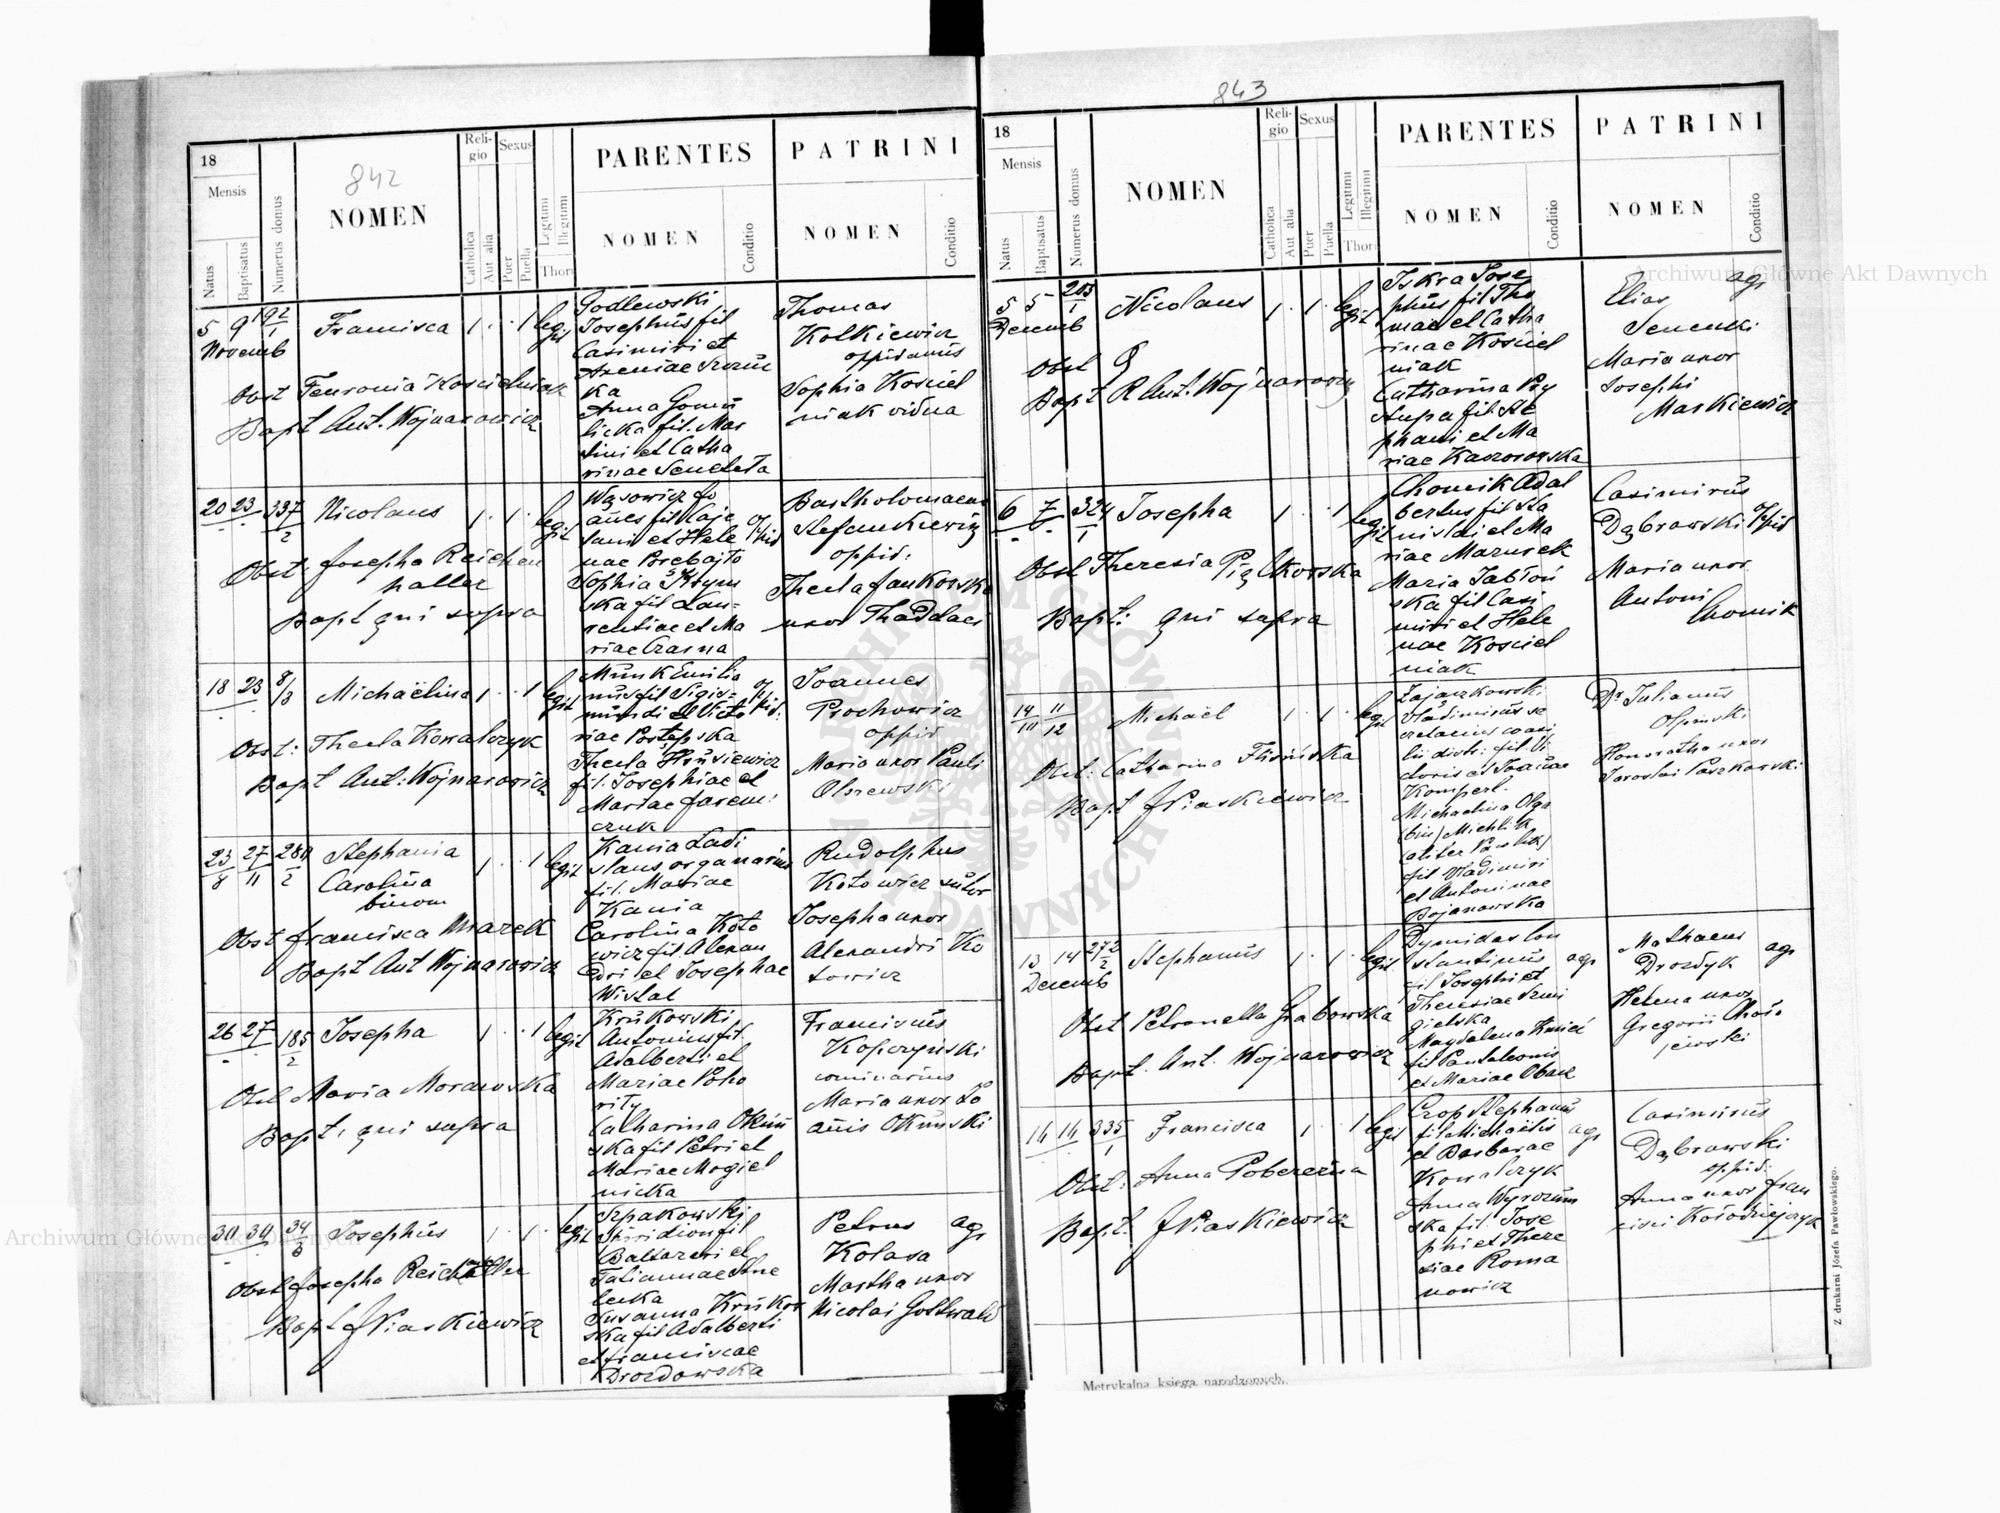 842
18
Mensis
Natus
Baptisatus
Numerus domus
NOMEN
Religio
Catholica
Aut alia
Sexus
Puer
Puella
Legitimi
Illegitimi
Thori
PARENTES
NOMEN
Conditio
PATRINI
NOMEN
Conditio
5 9 192/1
Novemb
Francisca
1 . . 1 legit
Obst Feuronia Kościelniak
Bapt Ant. Wojnarowicz
Godlewski
Josephus fil
Casimiri et
ka
Anna Gomu
licka fil. Mar
tini et Catha
rinae Seneteta
Thomas
Kolkiewicz
oppidanus
Sophia Kościel
niak vidua
20 23 337/2
Nicolaus
1 . 1 . legit
Obst. Josepha Reichen
haller
Bapt qui supra
Wąsowicz Jo
anes fil Caje
tani et Hele
nae Porebajto
Sophia Krym
ska fil Lau-
rentiae et Ma
riae Czarna
oppid
Bartholomaeus
Stefankiewicz
oppid.
Thecla Jankowska
uxor Thaddaei
18 23 8/3
Michaëlina
1 . . 1 legit
Obst: Thecla Kowalczyk
Bapt Ant: Wojnarowicz
Munk Emilia
nus fil Sigis-
mundi et Victo
riae Postępska
Thecla Hrusiewicz
fil. Josephiae et
Mariae Jarem:
czuk
oppid:
Joannes
Prochowicz
oppid
Maria uxor Pauli
Olszewski
23/8 27/11 280/2
Stephania
Carolina
binom
1 . . 1 legit
Obst Francisca Mrazek
Bapt Ant Wojnarowicz
Kania Ladi
slaus organarius
fil. Mariae
Kania
Carolina Koto
wicz fil Alexan
dri et Josephae
Wistal
Rudolphus
Kotowicz sutor
Josepha uxor
Alexandri Ko
towicz
26 27 185/2
Josepha
1 . . 1 legit
Obst Maria Morawska
Bapt. qui supra
Krukowski
Antonius fil.
Adalberti et
Mariae Poho
rity
Catharina Okuń
ska fil Petri et
Mariae Mogiel
nicka
Franciscus
Kopczyński
Maria uxor Jo
anis Okuński
30 30 34/3
Josephus
1 . 1 . legit
Obst Josepha Reichenhaller
Bapt J Piaskiewicz
Szpakowski
Spiridion fil
Baltazari et
Tatiannae Stne
lecka
Susanna Krukow
ska fil Adalberti
et Franciscae
Drozdowska
Petrus agr
Kolasa
Martha uxor
Nicolai Gottwald
843
18
Mensis
Natus
Baptisatus
Numerus domus
NOMEN
Religio
Catholica
Aut alia
Sexus
Puer
Puella
Legitimi
Illegitimi
Thori
PARENTES
NOMEN
Conditio
PATRINI
NOMEN
Conditio
5 5 203/1
Decemb
Nicolaus
1 . 1 . legit
Obst
Bapt R Ant. Wojnarowicz
Iskra Jose
phus fil Tho
mae et Catha
rinae Kościel
niak
Catharina Pry
stupa fil. Ste
phani et Ma
riae Kaczorowska
Elias agr
Senenki
Maria uxor
Josephi
Markiewicz
6 7 324/1
Josepha
1 . . 1 legit
Obst Theresia Piątkowska
Bapt: qui supra
Chomik Adal
bertus fil Sta
nislai et Ma
riae Mazurek
Maria Jabłoń
ska fil Casi
miri et Hele
nae Kościel
niak
Casimirus
Dąbrowski oppid
Maria uxor
Antoni
Chomik
14/10 11/12
Michaël
1 . 1 . legit
Obst: Catharina Flisińska
Bapt J Piaskiewicz
Zajączkowski
Vladimirus se
cretarius consi
lii distr: fil. Vi
ctoris et Joannae
Komperl.
Michaelina Olga
(bin) Michlik
(aliter Pawlik)
fil Vladimiri
et Antoninae
Bojanowska
Dr Julianus
Olpiński
Honoratha uxor
Jaroslai Paszkowski
13 14 272/2
Decemb
Stephanus
1 . 1 . legit
Obst Petronella Grabowska
Bapt. Ant. Wojnarowicz
Dymidas Con
stantinus
fil Josephi et
Theresiae Szmi
gielska
Magdalena Kmieć
fil Pantaleonis
et Mariae Obacz
agr
Mathaeus agr
Drozdyk
Helena uxor
Gregorii Choło
jewski
14 14 335/1
Francisca
1 . . 1 legit
Obst: Anna Pobereźna
Bapt. J Piaskiewicz
Crop Stephanus
fil Michaëlis
et Barbarae
Kowalczyk
Anna Wyrozum
ska fil. Jose
phi et There
siae Roma
nowicz
agr
Casimirus
Dąbrowski
oppid.
Anna uxor Fran
cisci Kołodziejczyk
Metrykalna księga narodzonych.
Z drukarni Józefa Pawłowskiego.
Archiwum Główne Akt Dawnych
Archiwum Główne Akt Dawnych
ARCHIWUM GŁÓWNE AKT DAWNYCH